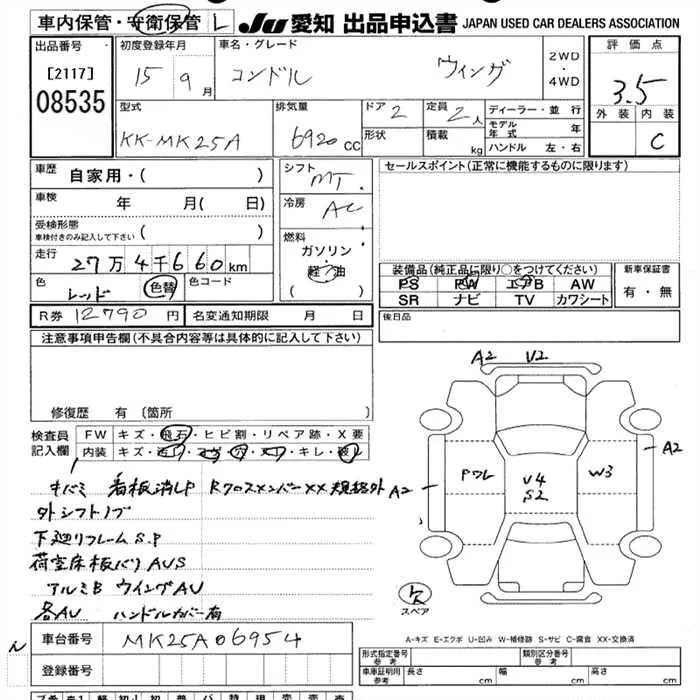 車内保管・安衛保管 L JU 愛知 出品申込書 JAPAN USED CAR DEALERS ASSOCIATION
出品番号 初度登録年月 車名・グレード 2WD・4WD 評価点
[2117] 08535 15 9月 コンドル ウィング 3.5
型式 排気量 ドア 2 定員 2人 ディーラー・並行 外装 内装
KK-MK25A 6920cc 形状 積載 kg モデル年式 年 ハンドル 左・右 C
車歴 自家用・( ) シフト MT. セールスポイント(正常に機能するものに限ります)
車検 年 月( 日) 冷房 AC
受検形態 車検付きのみ記入して下さい ( ) 燃料 ガソリン
走行 27万4千660km 軽油 ( )
装備品(純正品に限り○をつけてください) 新車保証書
色 レッド 色替 色コード PS PW エアB AW 有・無
SR ナビ TV カワシート
R券 12790円 名変通知期限 月 日 後日品
注意事項申告欄(不具合内容等は具体的に記入して下さい)
修復歴 有(箇所 )
A2 V2
検査員記入欄 FW キズ・飛石・ヒビ割・リペア跡・X要
内装 キズ・ キレ・破レ
A2
キバミ 看板消しP RクロスメンバーXX 規格外 A2
Pワレ V4 S2 W3
外シフトノブ
下廻りフレームS.P
荷室床板バリAVS
アルミB ウイングAV
各AV ハンドルカバー有
欠 スペア
車台番号 MK25A06954
A-キズ E-エクボ U-凹み W-補修跡 S-サビ C-腐食 XX-交換済
登録番号
形式指定番号 参考 類別区分番号 参考
車庫証明用 参考 長さ cm 幅 cm 高さ cm